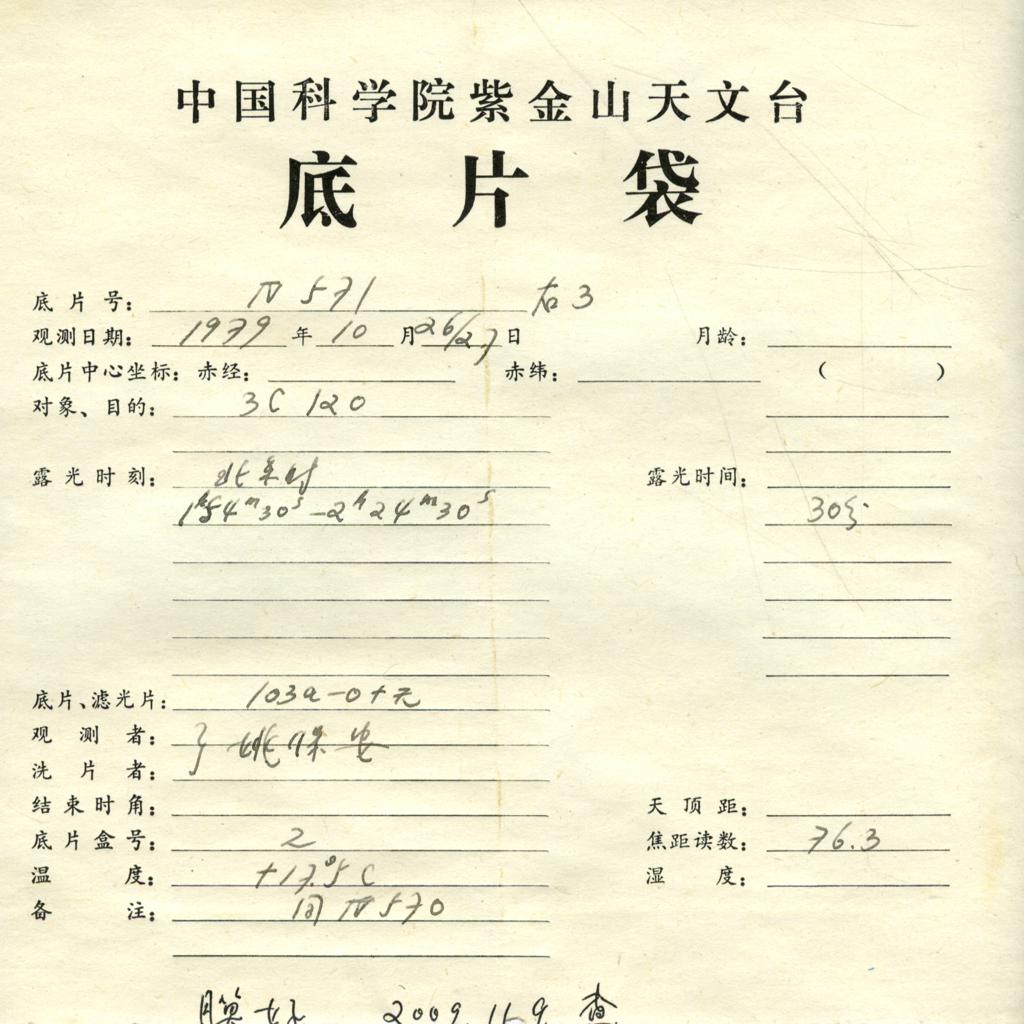 中国科学院紫金山天文台
底片袋
底片号： Ⅳ 571 右3
观测日期： 1979 年 10 月 26/27 日 月龄：
底片中心坐标：赤经： 赤纬： （ ）
对象、目的： 3C 120
露光时刻： 北京时 露光时间：
1ʰ54ᵐ30ˢ-2ʰ24ᵐ30ˢ 30分
底片、滤光片： 103a-0+无
观测者： 姚保安
洗片者：
结束时角： 天顶距：
底片盒号： 2 焦距读数： 76.3
温度： +17.°5 C 湿度：
备注： 同 Ⅳ 570
膜好 2009.11.9 查